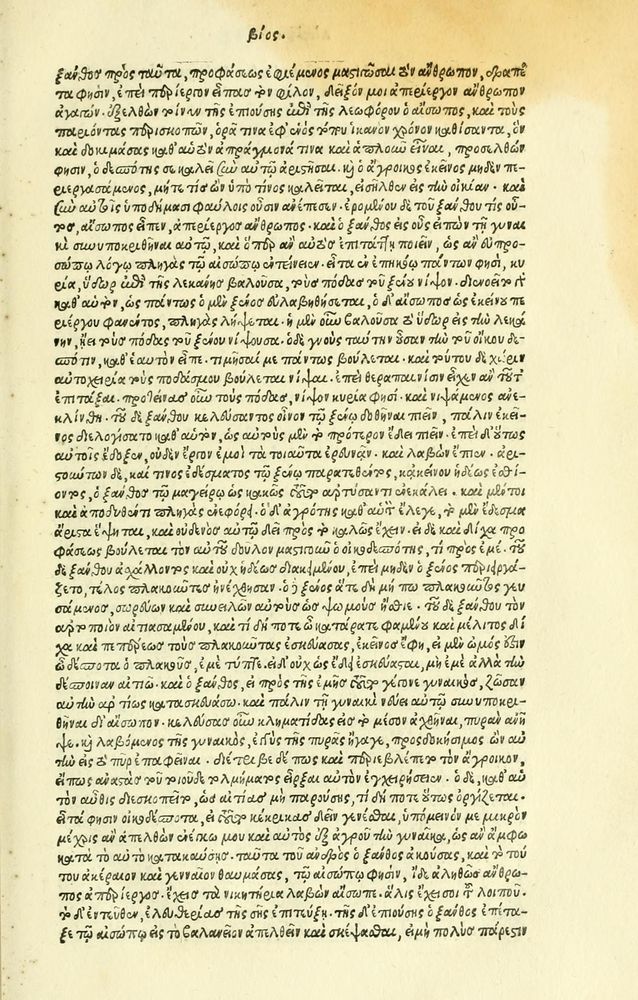 βίος.
ξανθος πρὸς ταῦτα, προφάσεως ἐφιέμενος μαστιγῶσαι τὸν ἄνθρωπον, δραπέ
τα φησὶν, ἐπεὶ περίεργον εἶπας τὸν φίλον, δεῖξόν μοι ἀπερίεργον ἄνθρωπον
ἀγαπῶν. ἐξελθὼν τοίνυν τῆς ἐπιούσης ἐπὶ τῆς λεωφόρου ὁ αἴσωπος, καὶ τοὺς
παριόντας περισκοπῶν, ὁρᾷ τινα ἐφ' ἑνὸς τόπου ἱκανὸν χρόνον καθίσαντα, ὃν
καὶ δοκιμάσας καθ' αὑτὸν ἀπράγμονά τινα καὶ ἁπλοῦν εἶναι, προσελθὼν
φησὶν, ὁ δεσπότης σε καλεῖ σὺν αὐτῷ ἀριστῆσαι. καὶ ὁ ἄγροικος ἐκεῖνος μηδὲν πε-
ριεργασάμενος, μήτε τίς ὢν ὑπό τινος καλεῖται, εἰσῆλθεν εἰς τὴν οἰκίαν. καὶ
σὺν αὐτοῖς ὑποδήμασι φαύλοις οὖσιν ἀνέπεσεν. ἐρομένου δὲ τοῦ ξάνθου τίς οὗ-
τος, αἴσωπος εἶπεν, ἀπερίεργος ἄνθρωπος. καὶ ὁ ξάνθος εἰς οὖς εἰπὼν τῇ γυναι
κὶ συνυποκριθῆναι αὐτῷ, καὶ ὅπερ ἂν αὐτὸς ἐπιτάττῃ ποιεῖν, ὡς ἂν εὐπρο-
σώπῳ λόγῳ πληγὰς τῷ αἰσώπῳ ἐντείνειεν. εἶτα ἐν ἐπηκόῳ πάντων φησὶ, κυ
ρία, ὕδωρ ἐπὶ τῆς λεκάνης βαλοῦσα, τοὺς πόδας τοῦ ξένου νίψον. διενοεῖτο γὰρ
καθ' αὑτὸν, ὡς πάντως ὁ μὲν ξένος εὐλαβηθήσεται, ὁ δ' αἴσωπος ὡς ἐκείνου πε
ριέργου φανέντος, πληγὰς λήψεται. ἡ μὲν οὖν βαλοῦσα τὸ ὕδωρ εἰς τὴν λεκά
νην, ᾔει τοὺς πόδας τοῦ ξένου νίψουσα. ὁ δὲ γνοὺς ταύτην οὖσαν τὴν τοῦ οἴκου δε-
σπότιν, καθ' ἑαυτὸν εἶπε. τιμῆσαί με πάντως βούλεται. καὶ τούτου δὲ χάριν
αὐτοχειρία τοὺς πόδας μου βούλεται νίψαι. ἐπεὶ θεραπαινίσιν εἶχεν ἂν τοῦτ'
ἐπιτάξαι. προτείνας οὖν τοὺς πόδας, νίψον κυρία φησί. καὶ νιψάμενος ἀνε-
κλίνθη. τοῦ δὲ ξάνθου κελεύσαντος οἶνον τῷ ξένῳ δοθῆναι πιεῖν, πάλιν ἐκεῖ-
νος διελογίσατο καθ' αὑτὸν, ὡς αὐτοὺς μὲν τὸ πρότερον ἔδει πιεῖν. ἐπεὶ δ' οὕτως
αὐτοῖς ἔδοξεν, οὐδὲν ἔργον ἐμοὶ τὰ τοιαῦτα ἐρευνᾶν. καὶ λαβὼν ἔπιεν. ἀρι-
στώντων δὲ, καί τινος ἐδέσματος τῷ ξένῳ παρατεθέντος, κἀκείνου ἡδέως ἐσθί-
οντος, ὁ ξάνθος τῷ μαγείρῳ ὡς κακῶς τοῦτο ἀρτύσαντι ἐνεκάλει. καὶ μέντοι
καὶ ἀποδυθέντι πληγὰς ἐνεφόρει. ὁ δ' ἀγρότης καθ' αὑτὸν ἔλεγε, τὸ μὲν ἔδεσμα
ἄριστα ἕψηται, καὶ οὐδενὸς αὐτῷ δεῖ πρὸς τὸ καλῶς ἔχειν. εἰ δὲ καὶ δίχα προ
φάσεως βούλεται τὸν αὑτοῦ δοῦλον μαστιγοῦν ὁ οἰκοδεσπότης, τί πρὸς ἐμέ. τοῦ
δὲ ξάνθου ἀσχάλλοντος καὶ οὐχ ἡδέως διακειμένου, ἐπεὶ μηδὲν ὁ ξένος περιειργά-
ζετο, τέλος πλακοῦντες ἠνέχθησαν. ὁ δὲ ξένος ἅτε δὴ μή πω πλακοῦντος γευ
σάμενος, σωρεύων καὶ συνειλῶν αὐτοὺς ὡς ψωμοὺς ἤσθιε. τοῦ δὲ ξάνθου τὸν
ἀρτοποιὸν αἰτιασαμένου, καὶ τί δή ποτε ὦ κατάρατε φαμένου καὶ μέλιτος δί
χα καὶ πεπέρεως τοὺς πλακοῦντας ἐσκεύασας, ἐκεῖνος ἔφη, εἰ μὲν ὠμός ἐστιν
ὦ δέσποτα ὁ πλακοῦς, ἐμὲ τύπτε. εἰ δ' οὐχ ὡς ἔδει ἐσκεύασται, μὴ ἐμὲ ἀλλὰ τὴν
δέσποιναν αἰτιῶ. καὶ ὁ ξάνθος, εἰ πρὸς τῆς ἐμῆς τοῦτο γέγονε γυναικὸς, ζῶσαν
αὐτὴν ἀρτίως κατακαύσω. καὶ πάλιν τῇ γυναικὶ νεύει αὐτῷ συνυποκρι-
θῆναι δι' αἴσωπον. κελεύσας οὖν κληματίδας εἰς τὸ μέσον ἀχθῆναι, πυρὰν ἀνῆ
ψε. καὶ λαβόμενος τῆς γυναικὸς, ἐγγὺς τῆς πυρᾶς ἤγαγε, προσδοκήσιμος ὢν αὐ
τὴν εἰς τὸ πῦρ ἐπαφεῖναι. διέτριβε δέ πως καὶ περιέβλεπε τὸν ἄγροικον,
εἴ πως ἀναστὰς τοῦ τοιοῦδε τολμήματος εἶρξαι αὐτὸν ἐγχειρήσειεν. ὁ δὲ, καθ' αὑ
τὸν αὖθις διεσκοπεῖτο, ὡς αἰτίας μὴ παρούσης, τί δή ποτε οὕτως ὀργίζεται.
εἶτά φησιν οἰκοδέσποτα, εἰ τοῦτο κέκρικας δεῖν γενέσθαι, ὑπόμεινόν με μικρὸν
μέχρις ἂν ἀπελθὼν ἐνέγκω μου καὶ αὐτὸς ἐξ ἀγροῦ τὴν γυναῖκα, ὡς ἂν ἄμφω
κατὰ τὸ αὐτὸ κατακαύσῃς. ταῦτα τοῦ ἀνδρὸς ὁ ξάνθος ἀκούσας, καὶ τὸ τού
του ἀκέραιον καὶ γενναῖον θαυμάσας, τῷ αἰσώπῳ φησὶν, ἴδε ἀληθῶς ἄνθρω-
πος ἀπερίεργος. ἔχεις τὰ νικητήρια λαβὼν αἴσωπε. ἅλις ἔχει σοι τοῦ λοιποῦ.
τὸ δ' ἐντεῦθεν, ἐλευθερίας τῆς σῆς ἐπιτεύξῃ. τῆς δ' ἐπιούσης ὁ ξάνθος ἐπέτα-
ξε τῷ αἰσώπῳ εἰς τὸ βαλανεῖον ἀπελθεῖν καὶ σκέψασθαι, εἰ μὴ πολὺς πάρεστιν